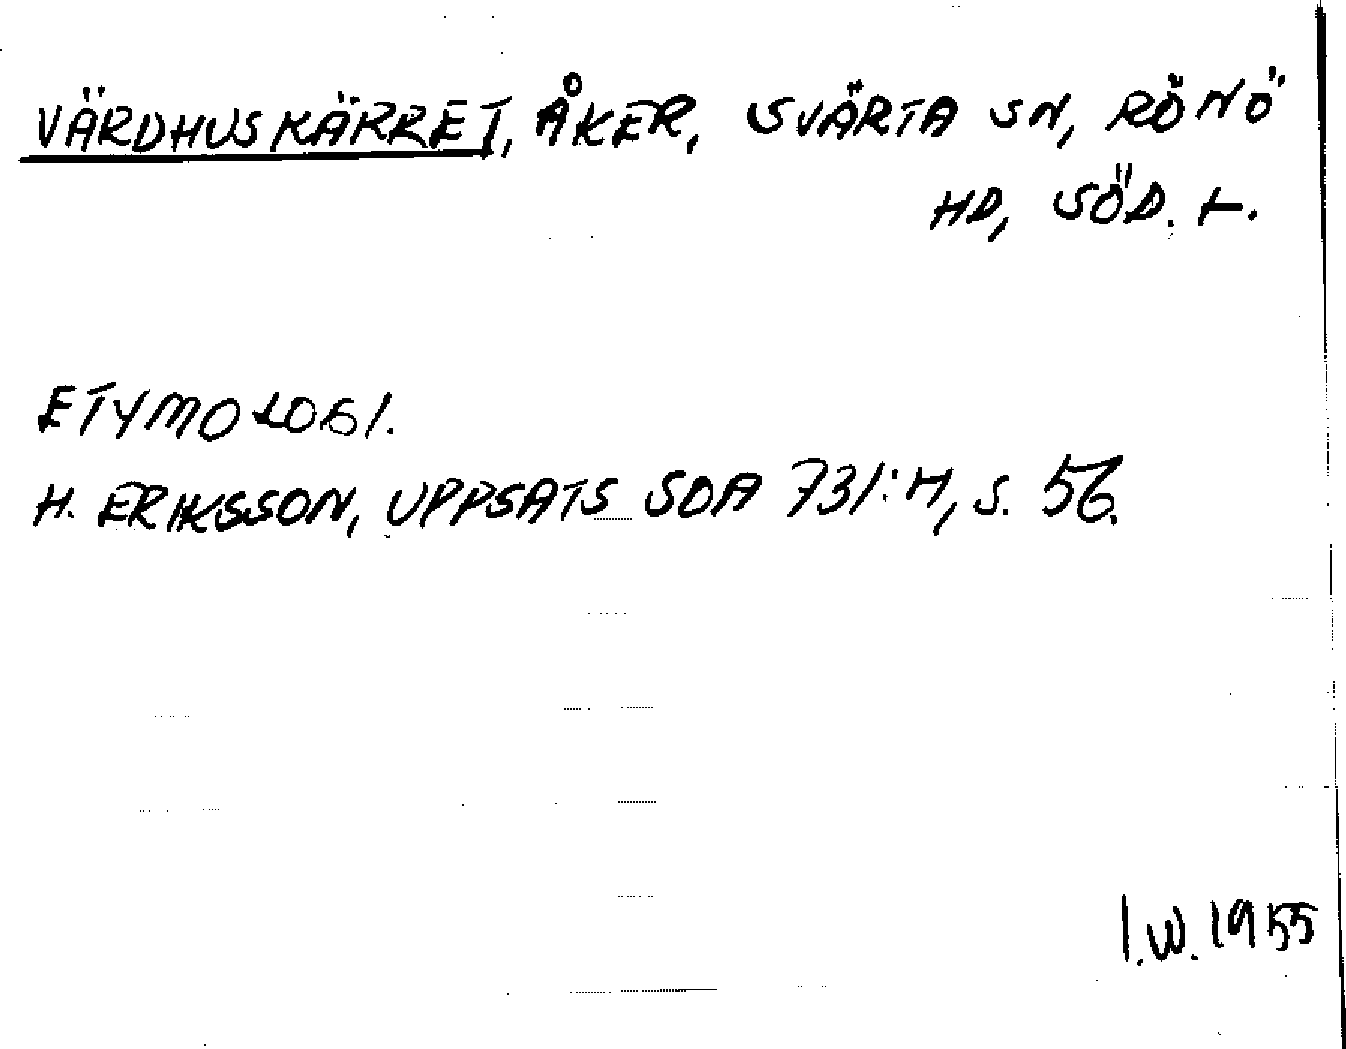 VÄRDHUSKÄRRET, ÅKER, SVÄRTA SN, RÖNÖ
HD, SÖD. L.
ETYMOLOGI.
H. ERIKSSON, UPPSATS SOA 731:H, S. 56.
I.W. 1955